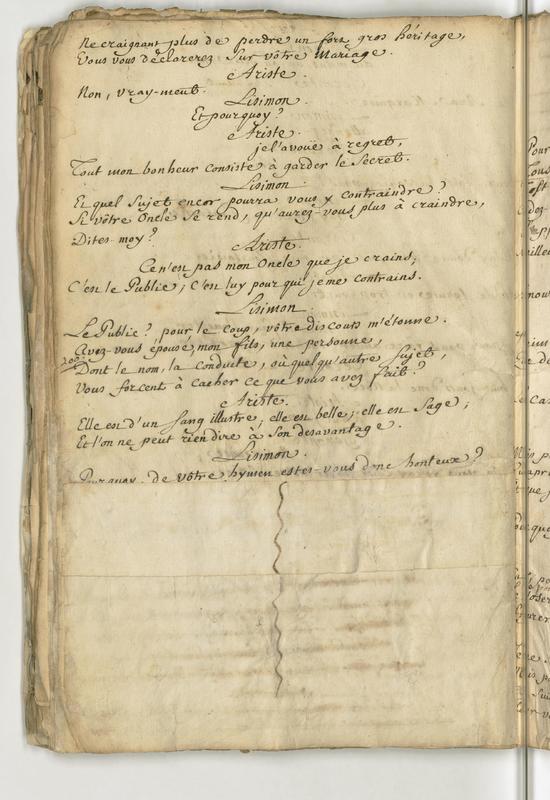 Ne craignant plus de perdre un fort gros héritage,
Vous vous déclarerez sur vôtre Mariage.
Ariste.
Non, vray-ment.
Lisimon.
Et pourquoy?
Ariste.
je l'avoüe à regret,
Tout mon bonheur consiste à garder le Secret.
Lisimon
Et quel Sujet encor pourra vous y contraindre?
Si vôtre Oncle se rend, qu'aurez-vous plus à craindre,
Dites-moy?
Ariste.
Ce n'est pas mon Oncle que je crains;
C'est le Public; C'est luy pour qui je me contrains.
Lisimon.
Le Public? pour le coup, vôtre discours m'étonne.
Avez-vous épousé, mon fils, une personne,
Dont le nom, la Conduite, où quelqu'autre Sujet,
Vous forcent à Cacher ce que vous avez fait?
Ariste.
Elle est d'un sang illustre, elle est belle; elle est Sage;
Et l'on ne peut rien dire à Son desavantage.
Lisimon.
Pourquoy de vôtre hymen estes-vous donc honteux?